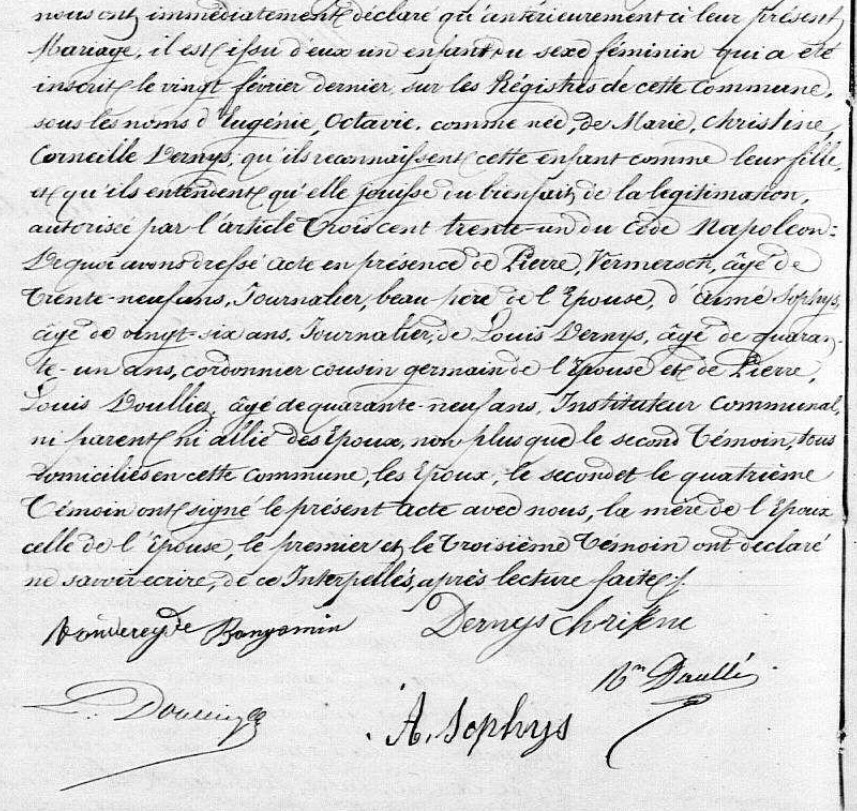 nous ont immédiatement déclaré qu'antérieurement à leur présent
Mariage, il est issu d'eux un enfant du sexe féminin qui a été
inscrit le vingt février dernier, sur les Régistres de cette Commune,
sous les noms d'Eugénie, Octavie, comme née, de Marie, Christine,
Corneille Dernys, qu'ils reconnaissent cette enfant comme leur fille,
et qu'ils entendent qu'elle jouisse du bienfait de la legitimation,
autorisée par l'article Trois cent trente-un du Code Napoléon:
De quoi avons dressé acte en présence de Pierre, Vermersch, âgé de
Trente-neuf ans, Journalier, beau père de l'Epouse, d'aimé Sophys,
âgé de vingt-six ans, Journalier, de Louis Dernys, âgé de quaran-
te-un ans, cordonnier cousin germain de l'Epouse et de Pierre,
Louis Doulliez, âgé de quarante-neuf ans, Instituteur Communal,
ni parent ni allié des Epoux, non plus que le second Témoin, tous
domiciliés en cette commune, les Epoux, le second et le quatrième
Témoin ont signé le présent acte avec nous, la mère de l'Epoux
celle de l'Epouse, le premier et le Troisième Témoin ont déclaré
ne savoir écrire, de ce Interpellés, après lecture faite ./.
Benjamin Dernys Christine
A. Sophys